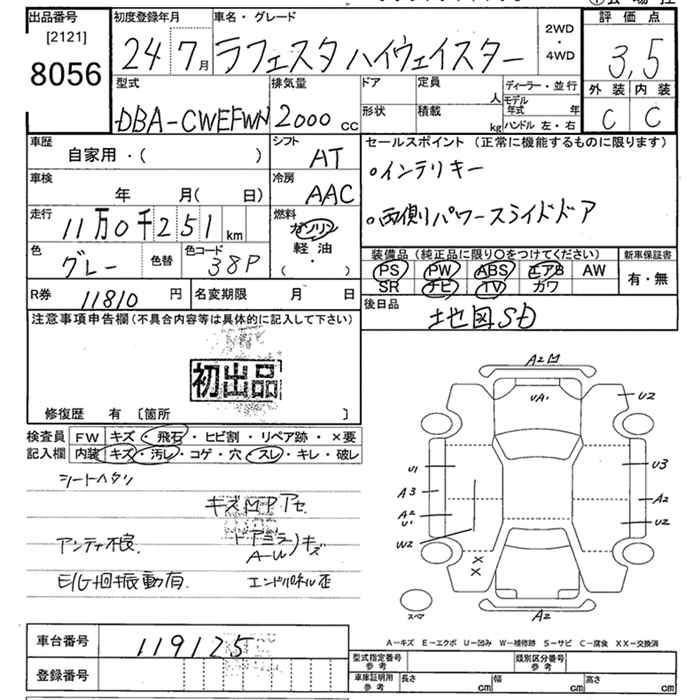 出品番号
[2121]
8056
初度登録年月
24 7月
車名・グレード
ラフェスタ ハイウェイスター
2WD
・
4WD
評価点
3,5
外装 内装
C C
型式
DBA-CWEFWN
排気量
2000 cc
ドア
定員 人
形状
積載 kg
ディーラー・並行
モデル年式 年
ハンドル 左・右
車歴
自家用・( )
シフト
AT
車検
年 月( 日)
冷房
AAC
走行
11万0千251 km
燃料
ガソリン
軽油
・( )
色
グレー
色替
色コード
38P
R券 11810 円
名変期限 月 日
セールスポイント (正常に機能するものに限ります)
○インテリキー
○両側パワースライドドア
装備品 (純正品に限り〇をつけてください)
新車保証書
PS PW ABS エアB AW
SR ナビ TV カワ
有・無
後日品
地図SD
注意事項申告欄(不具合内容等は具体的に記入して下さい)
初出品
修復歴 有 〔箇所 〕
検査員
記入欄
FW キズ・飛石・ヒビ割・リペア跡・×要
内装 キズ・汚レ・コゲ・穴・スレ・キレ・破レ
シートヘタリ
アンテナ不良
E/G廻振動有
ドアミラー
A-W
キズ
エンドパネル歪
A2
UA1
U2
U1
A3
A2
U1
W2
U3
A2
U2
XX
スペア
A2
A-キズ E-エクボ U-凹み W-補修跡 S-サビ C-腐食 XX-交換済
車台番号
119125
登録番号
型式指定番号
参考
類別区分番号
参考
車庫証明用
参考
長さ cm
幅 cm
高さ cm